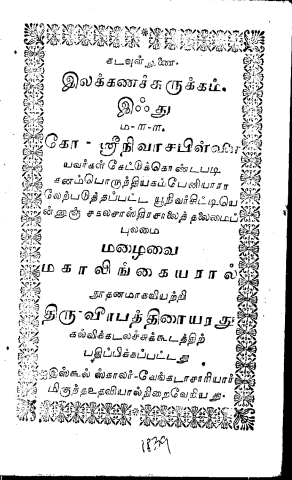 கடவுள் துணை.
இலக்கணச்சுருக்கம்.
இஃது
ம-ள-ள-ஸ்ரீ
கோ - ஸ்ரீநிவாசபிள்ளை
யவர்கள் கேட்டுக்கொண்டபடி
கனம்பொருந்தியகம்பேனியாரா
லேற்படுத்தப்பட்ட யூநிவர்சிட்டியெ
ன்னுஞ் சகலசாஸ்திரசாலைத் தலைமைப்
புலமை
மழைவை
மகாலிங்கையரால்
நூதனமாகவியற்றி
திரு-வீரபத்திரையரது
கல்விக்கடலச்சுக்கூடத்திற்
பதிப்பிக்கப்பட்டது
ஐஇஸ்கூல் ஸ்காலர்-வேங்கடாசாரியார்
மிகுந்தஉதவியால்நிறைவேறியது.
1839